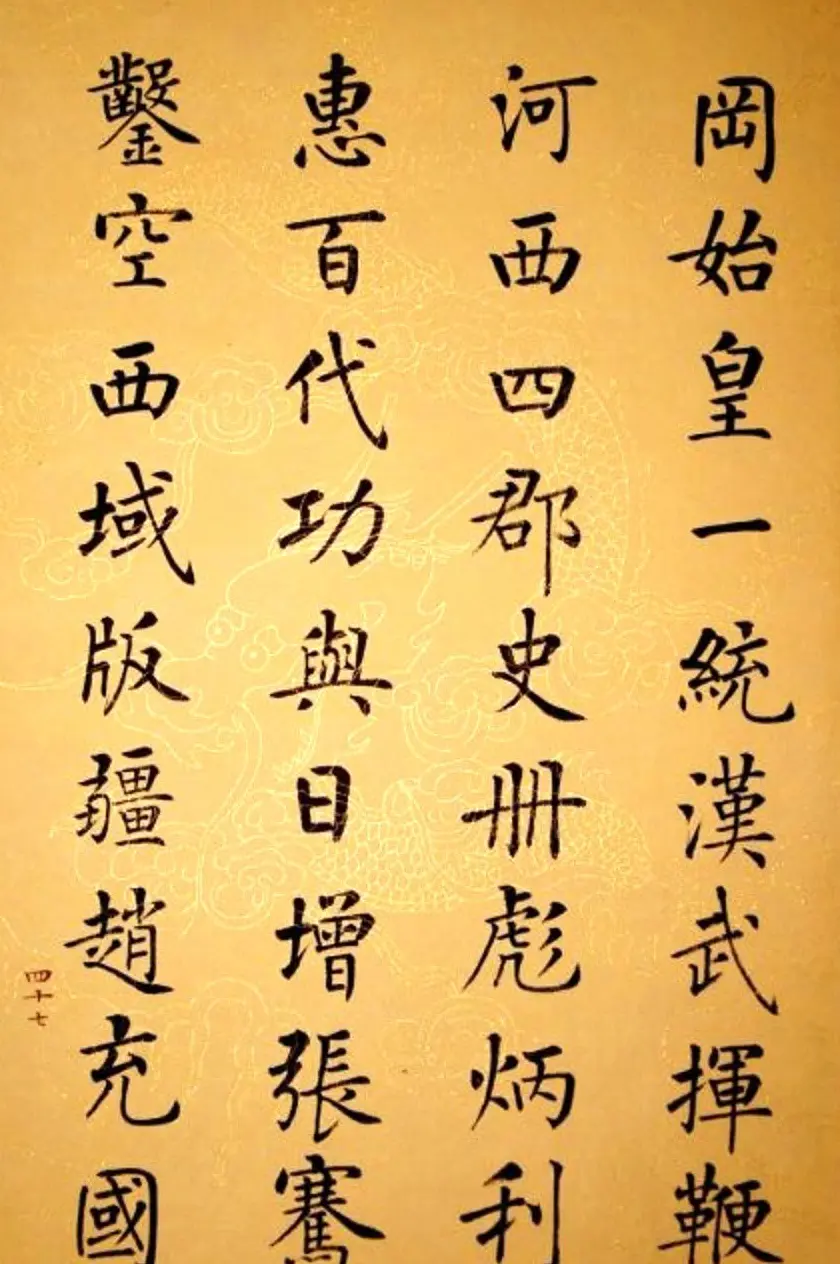 岡始皇一統漢武揮鞭
河西四郡史冊彪炳利
惠百代功與日增張騫
鑿空西域版疆趙充國
四十七